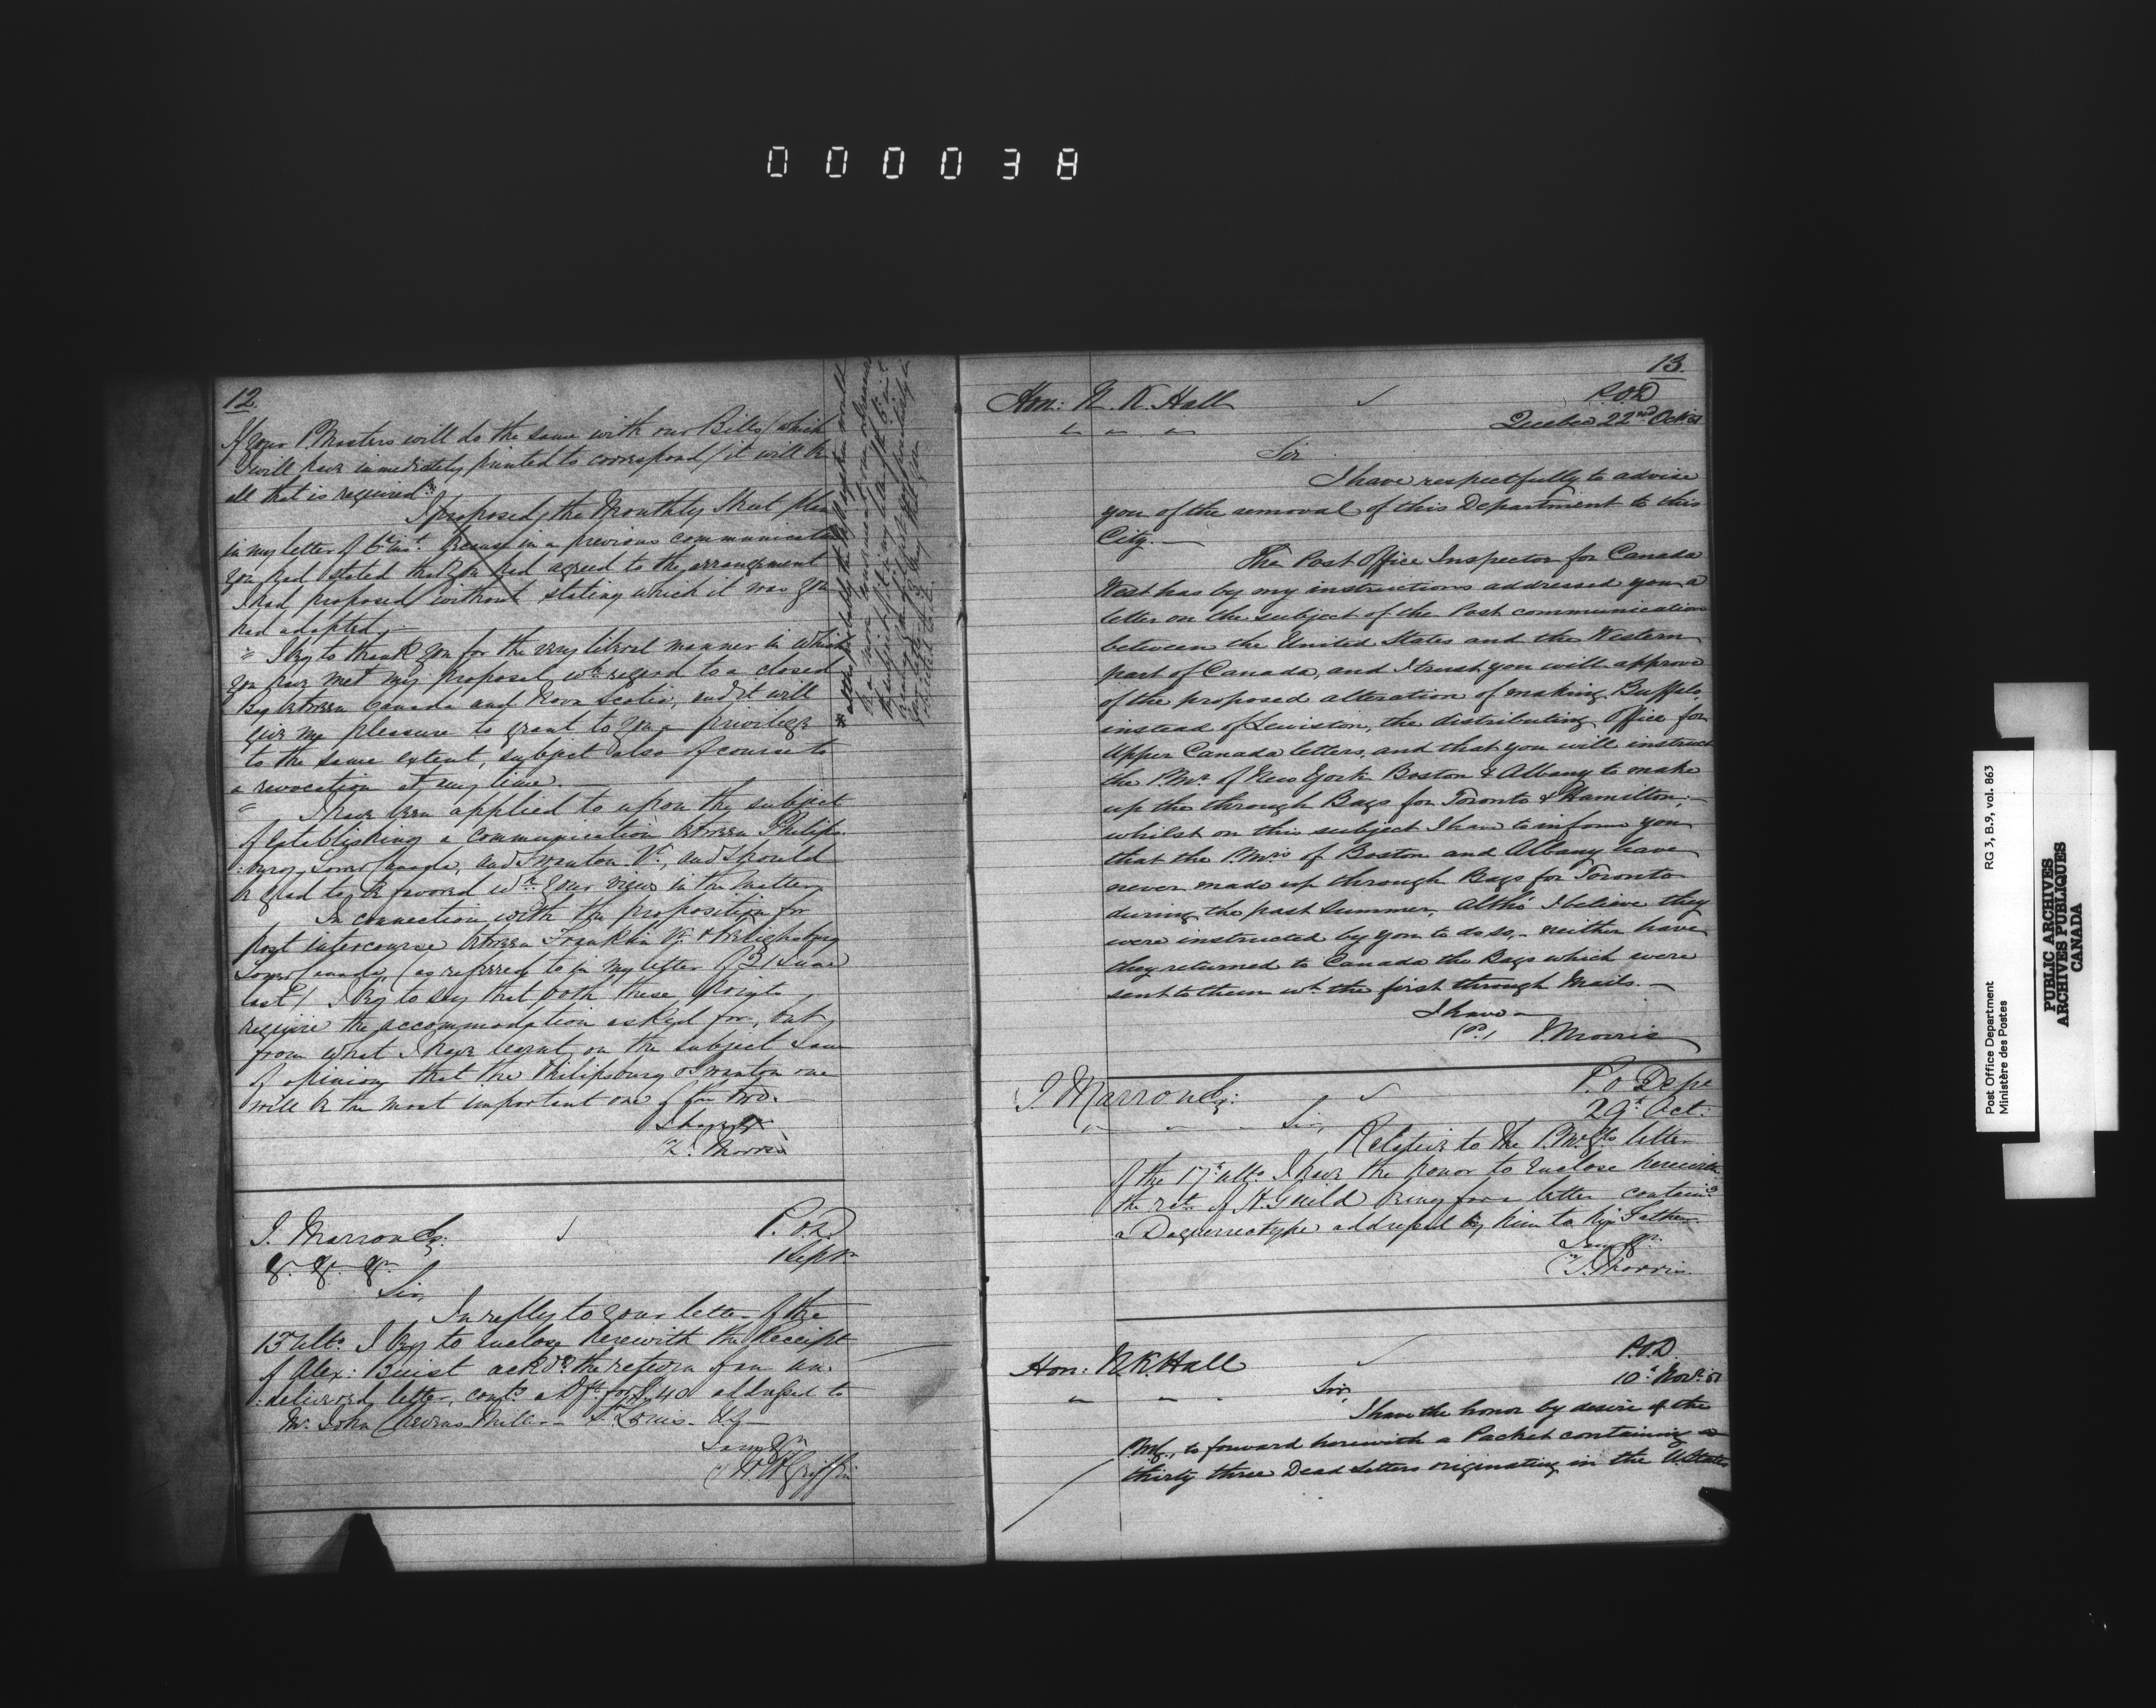 000038
12.
If your P. Masters will do the same with our Bills (which
I will have immediately printed to correspond) it will be
all that is required*
I proposed the Monthly Sheet plan
in my letter of 6th inst. because in a previous communication
you had stated that you had agreed to the arrangement
I had proposed without stating which it was you
had adopted,
I beg to thank you for the very liberal manner in which
you have met my proposal wth regard to a closed
Bag between Canada and Nova Scotia, and it will
give me pleasure to grant to you a privilege
to the same extent, subject also of course to
a revocation at any time.
I have been applied to upon the subject
of establishing a communication between Philips-
:burg, Lower Canada, and Swanton Vt, and should
be glad to be favored wth your views in the matter,
In connection with the proposition for
post intercourse between Franklin Vt. & Frelighsburg
Lower Canada, (as referred to in my letter of 21 June
last) I beg to say that both these points
require the accommodation asked for, but
from what I have learnt on the subject I am
of opinion that the Philipsburg & Swanton one
will be the most important one of the two.
I have &c
J. Morris
J. Marron Esq:
P.O.D.
1 Septr.
&c &c &c
Sir,
In reply to your letter of the
13th ulto. I beg to enclose herewith the Receipt
of Alex: Buist ackdg. the return of an un-
:delivered letter, contg a Dft. for $ 40 addressed to
Mr. John St. Louis.
I am &c
W H Griffin
13.
Hon: N. K. Hall
P.O.D
Quebec 22nd Oct 51
Sir
I have respectfully to advise
you of the removal of this Department to this
City. —
The Post Office Inspector for Canada
West has by my instructions addressed you a
letter on the subject of the Post communication
between the United States and the Western
part of Canada, and I trust you will approve
of the proposed alteration of making Buffalo,
instead of Lewiston, the distributing Office for
Upper Canada letters, and that you will instruct
the P.Mrs of New York Boston & Albany to make
up the through Bags for Toronto & Hamilton; —
whilst on this subject I have to inform you
that the P.Mrs of Boston and Albany have
never made up through Bags for Toronto
during the past Summer, altho' I believe they
were instructed by you to do so, — neither have
they returned to Canada the Bags which were
sent to them wh. the first through Mails. —
I have —
J. Morris
J. Marron Esq:
P.O Dept
29th Oct:
Sir,
Relative to the P.M.Gls letter
of the 17th ulto. I have the honor to enclose herewith
the rct. of H. Guild being for a letter containg
a Daguerreotype addressed by him to his Father.
I am &c
J. Morris
Hon: N.K. Hall
P.O.D.
10th Novr. 51
Sir,
I have the honor by desire of the
P.M.G., to forward herewith a Packet containing
thirty three Dead Letters originating in the U.States
Post Office Department
Ministère des Postes
RG 3, B.9, vol. 863
PUBLIC ARCHIVES
ARCHIVES PUBLIQUES
CANADA